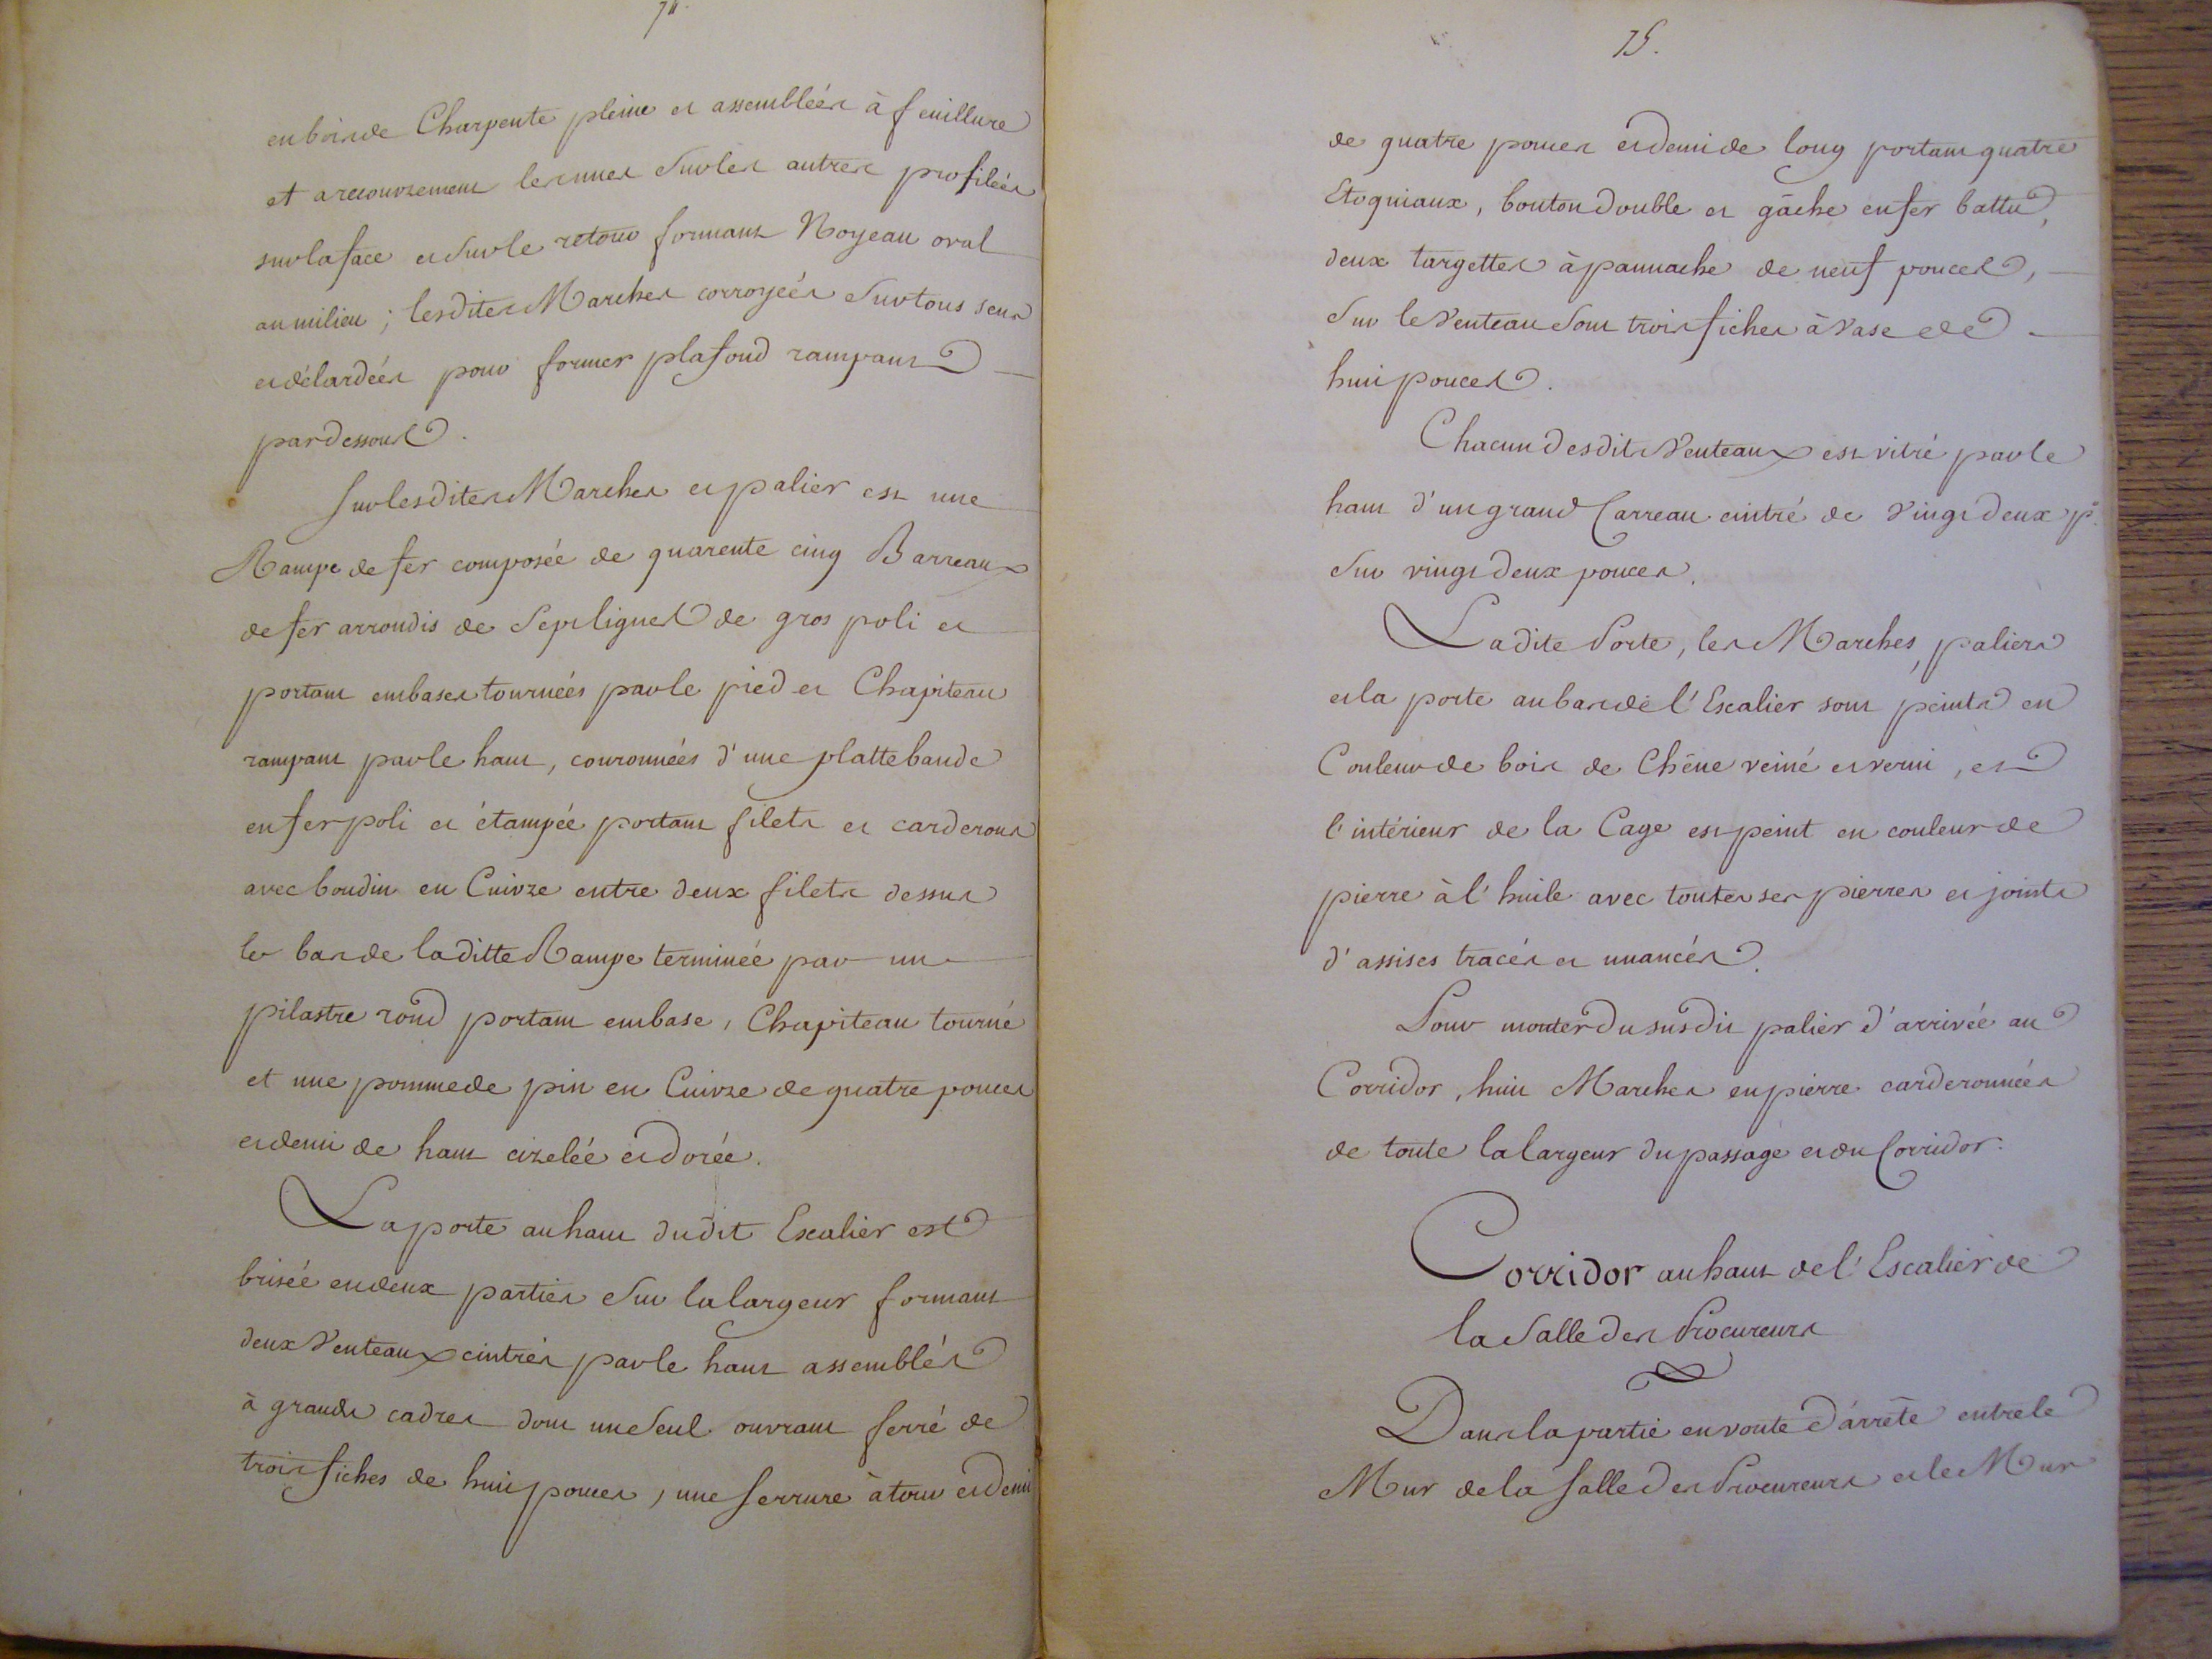 74.
en bois de Charpente pleine et assemblées à feuillure
et arecouvrement les unes Sur les autres profilées
sur la face et Sur le retour formant Noyeau oval
au milieu ; lesdites Marches corroyées Sur tous sens
et délardées pour former plafond rampant
par dessous.
Sur lesdites Marches et palier est une
Rampe de fer composée de quarente cinq Barreaux
de fer arrondis de Sept lignes de gros poli et
portant embases tournées par le pied et Chapiteau
rampant par le haut, couronnées d'une platte bande
en fer poli et étampée portant filets et carderons
avec boudin en Cuivre entre deux filets dessus
le bas de la ditte Rampe terminée par un
pilastre rond portant embase, Chapiteau tourné
et une pomme de pin en Cuivre de quatre pouces
et demi de haut cizelée et dorée.
La porte au haut dudit Escalier est
brisée en deux parties Sur la largeur formant
deux Venteaux ceintrés par le haut assemblés
à grands cadres dont un Seul ouvrant ferré de
trois fiches de huit pouces, une Serrure à tour et demi
75.
de quatre pouces et demi de long portant quatre
Etoquiaux, bouton double et gâche en fer battu,
deux targettes à pannache de neuf pouces,
Sur le Venteau Sont trois fiches à Vase de
huit pouces.
Chacun desdits Venteaux est vitré par le
haut d'un grand Carreau cintré de Vingt deux p.ces
Sur vingt deux pouces.
La dite Porte, les Marches, paliers
et la porte au bas de l'Escalier sont peints en
Couleur de bois de Chêne veiné et verni, et
l'intérieur de la Cage est peint en couleur de
pierre à l'huile avec toutes ses pierres et joints
d'assises tracés et nuancés.
Pour monter du susdit palier d'arrivée au
Corridor, huit Marches en pierre carderonnées
de toute la largeur du passage et du Corridor.
Corridor au haut de l'Escalier de
la Salle des Procureurs
Dans la partie en voute d'arrête entre le
Mur de la Salle des Procureurs et le Mur